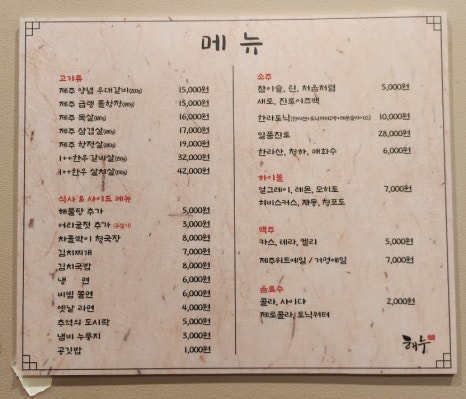 메 뉴
고기류
제주 양념 우대갈비(200g) 15,000원
제주 급랭 돌항정(180g) 15,000원
제주 목살(180g) 16,000원
제주 삼겹살(180g) 17,000원
제주 항정살(180g) 19,000원
1++한우 갈비살(150g) 32,000원
1++한우 살치살(150g) 42,000원
식사 & 사이드 메뉴
해물탕 추가 5,000원
어리굴젓 추가 3,000원
차돌박이 청국장 8,000원
김치찌개 7,000원
김치국밥 8,000원
냉 면 6,000원
비빔 쫄면 6,000원
옛날 라면 4,000원
추억의 도시락 5,000원
냄비 누룽지 3,000원
공깃밥 1,000원
소주
참이슬, 린, 처음처럼 5,000원
새로, 진로이즈백
한라토닉 10,000원
일품진로 28,000원
한라산, 청하, 매화수 6,000원
하이볼
얼그레이, 레몬, 모히토 7,000원
히비스커스, 자몽, 청포도
맥주
카스, 테라, 켈리 5,000원
제주위트에일 / 거멍에일 7,000원
음료수
콜라, 사이다 2,000원
제로콜라, 토닉워터
해누